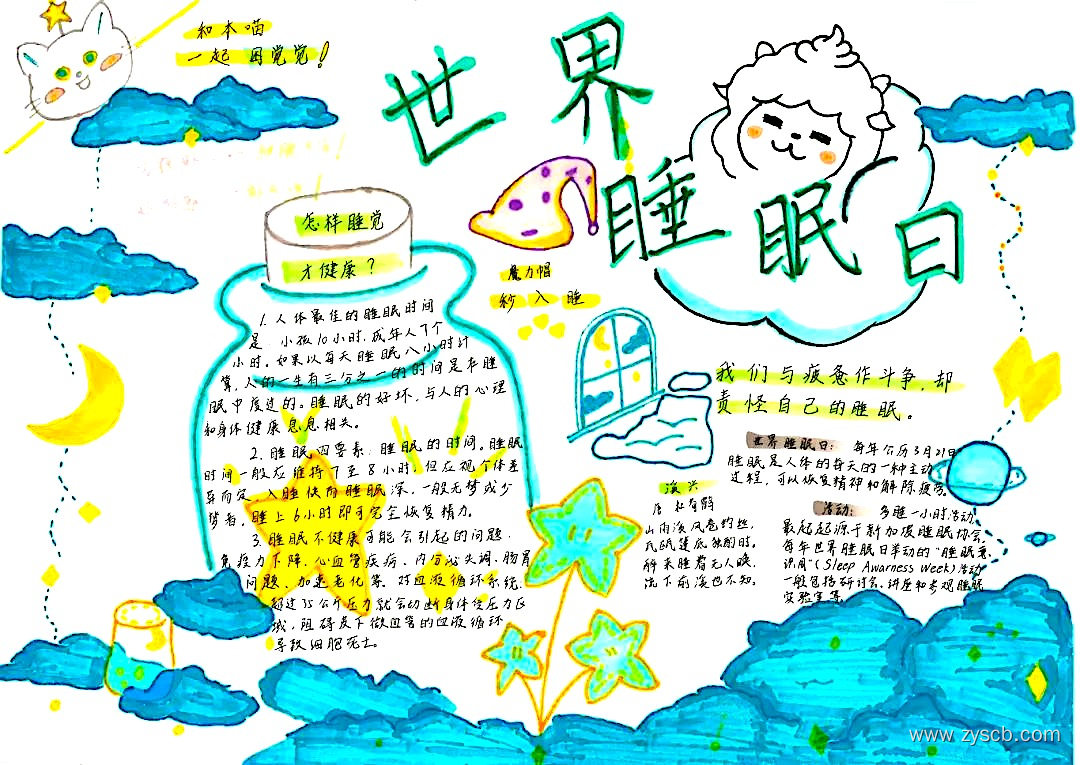 和本喵
一起 困觉觉!
世界
睡眠日
怎样睡觉
才健康?
魔力帽
秒入睡
1.人体最佳的睡眠时间
是 小孩10小时.成年人7个
小时.如果以每天睡眠八小时计
算,人的一生有三分之一的时间是在睡
眠中度过的。睡眠的好坏.与人的心理
和身体健康息息相关。
2.睡眠四要素:睡眠的时间。睡眠
时间一般应维持7至8小时,但应视个体差
异而定.入睡快而睡眠深、一般无梦或少
梦者,睡上6小时即可完全恢复精力。
3.睡眠不健康可能会引起的问题.
免疫力下降、心血管疾病、内分泌失调、肠胃
问题、加速老化等.对血液循环系统.
超过35公斤压力就会切断身体受压力区
域,阻碍皮下微血管的血液循环
导致细胞死亡。
我们与疲惫作斗争,却
责怪自己的睡眠。
世界睡眠日: 每年公历3月21日
睡眠是人体的每天的一种主动
过程,可以恢复精神和解除疲劳。
溪兴
唐 杜荀鹤
山雨溪风卷钓丝,
瓦瓯篷底独酌时。
醉来睡着无人唤,
流下前溪也不知。
活动: 多睡一小时活动
最起起源于新加坡睡眠协会.
每年世界睡眠日举动的"睡眠意
识周"(Sleep Awarness Week)活动
一般包括研讨会、讲座和参观睡眠
实验室等
www.zyscb.com